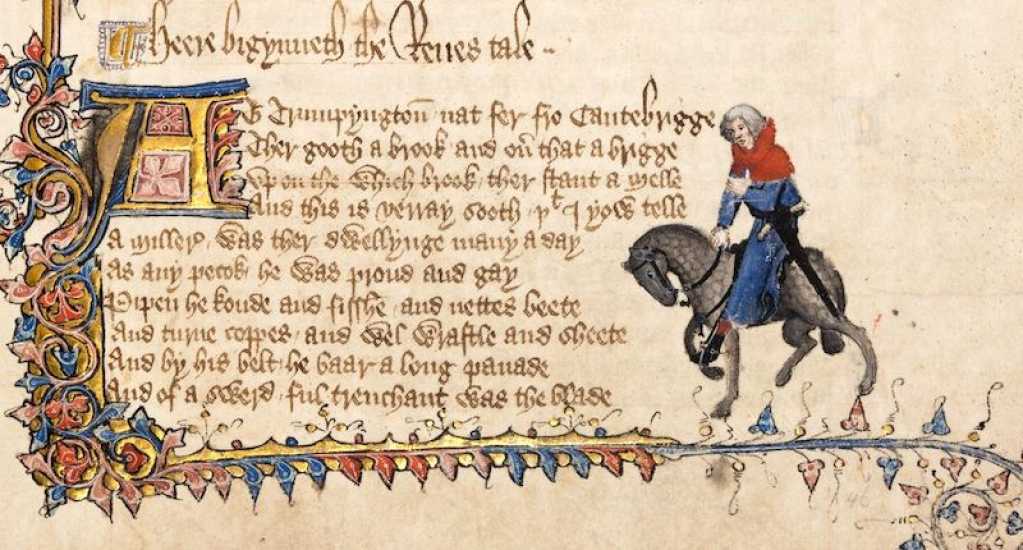 Heere bigynneth the Reues tale
At Trumpyngtoñ nat fer fro Cantebrigge
Ther gooth a brook and oũ that a brigge
Vpon the which brook ther stant a melle
And this is verray sooth þᵗ I yow telle
A Millere was ther dwellynge many a day
As any pecok he was proud and gay
Pipen he koude and fisshe and nettes beete
And turne coppes and wel wrastle and sheete
And by his belt he baar a long panade
And of a swerd ful trenchant was the blade